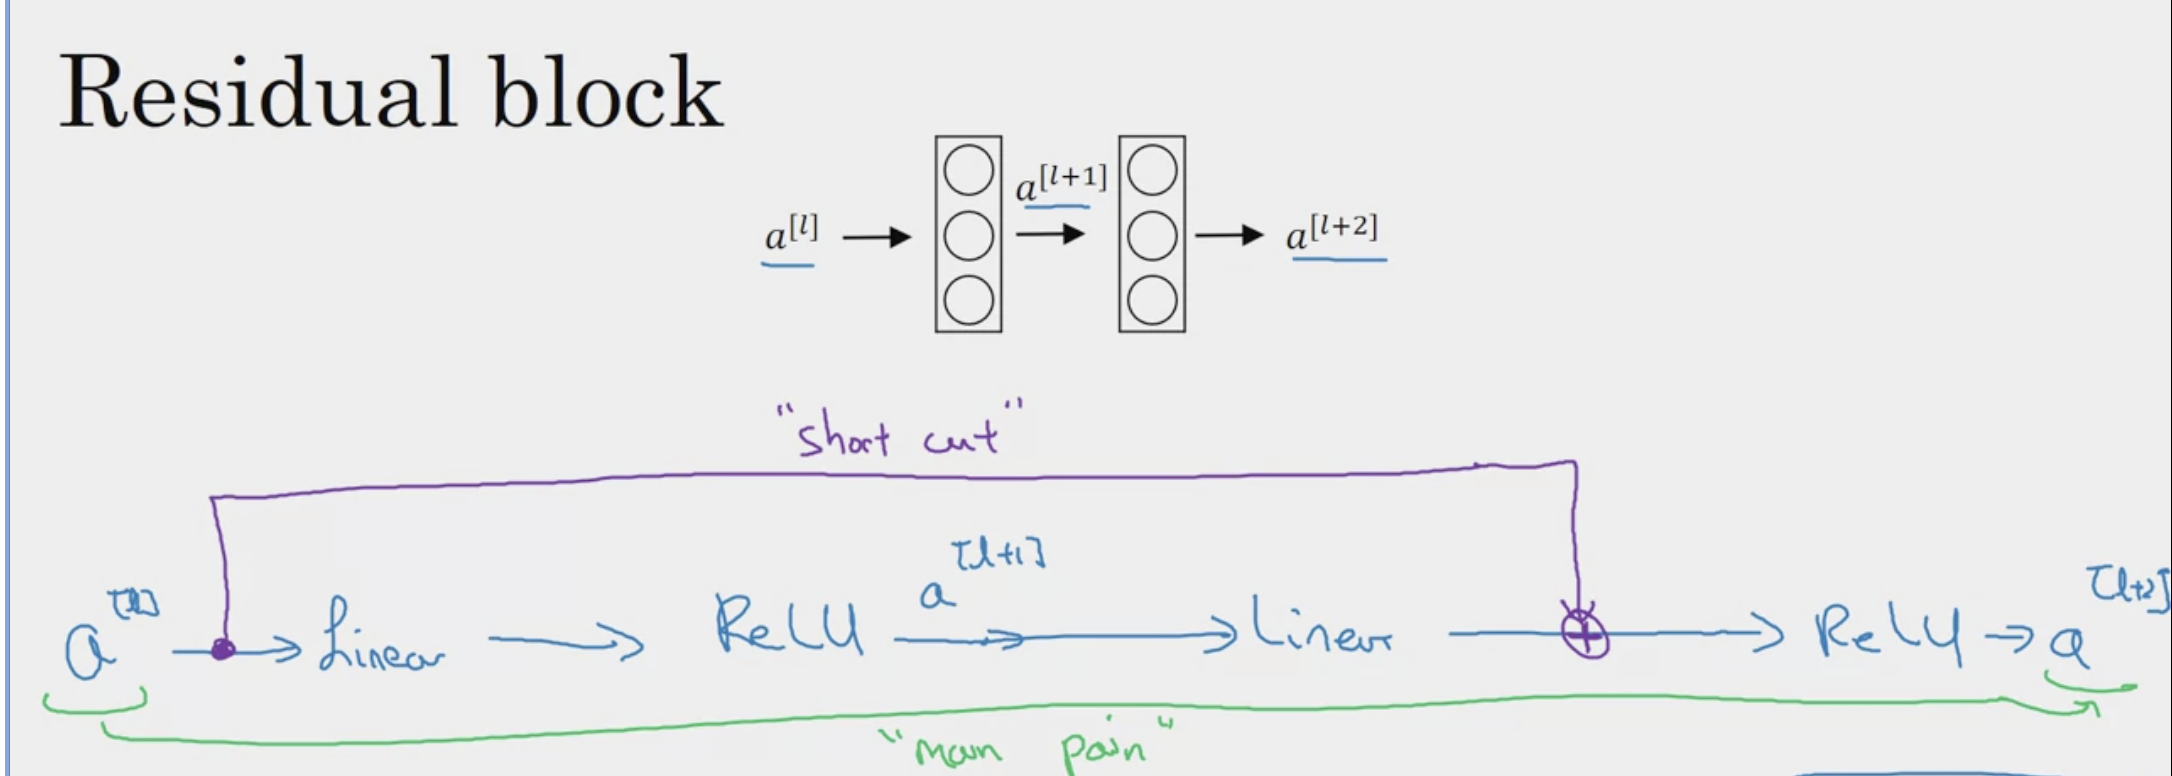 Residual block
a^[l] → a^[l+1] → a^[l+2]
"short cut"
a^[l] → Linear → ReLU a^[l+1] → Linear → + → ReLU → a^[l+2]
"main